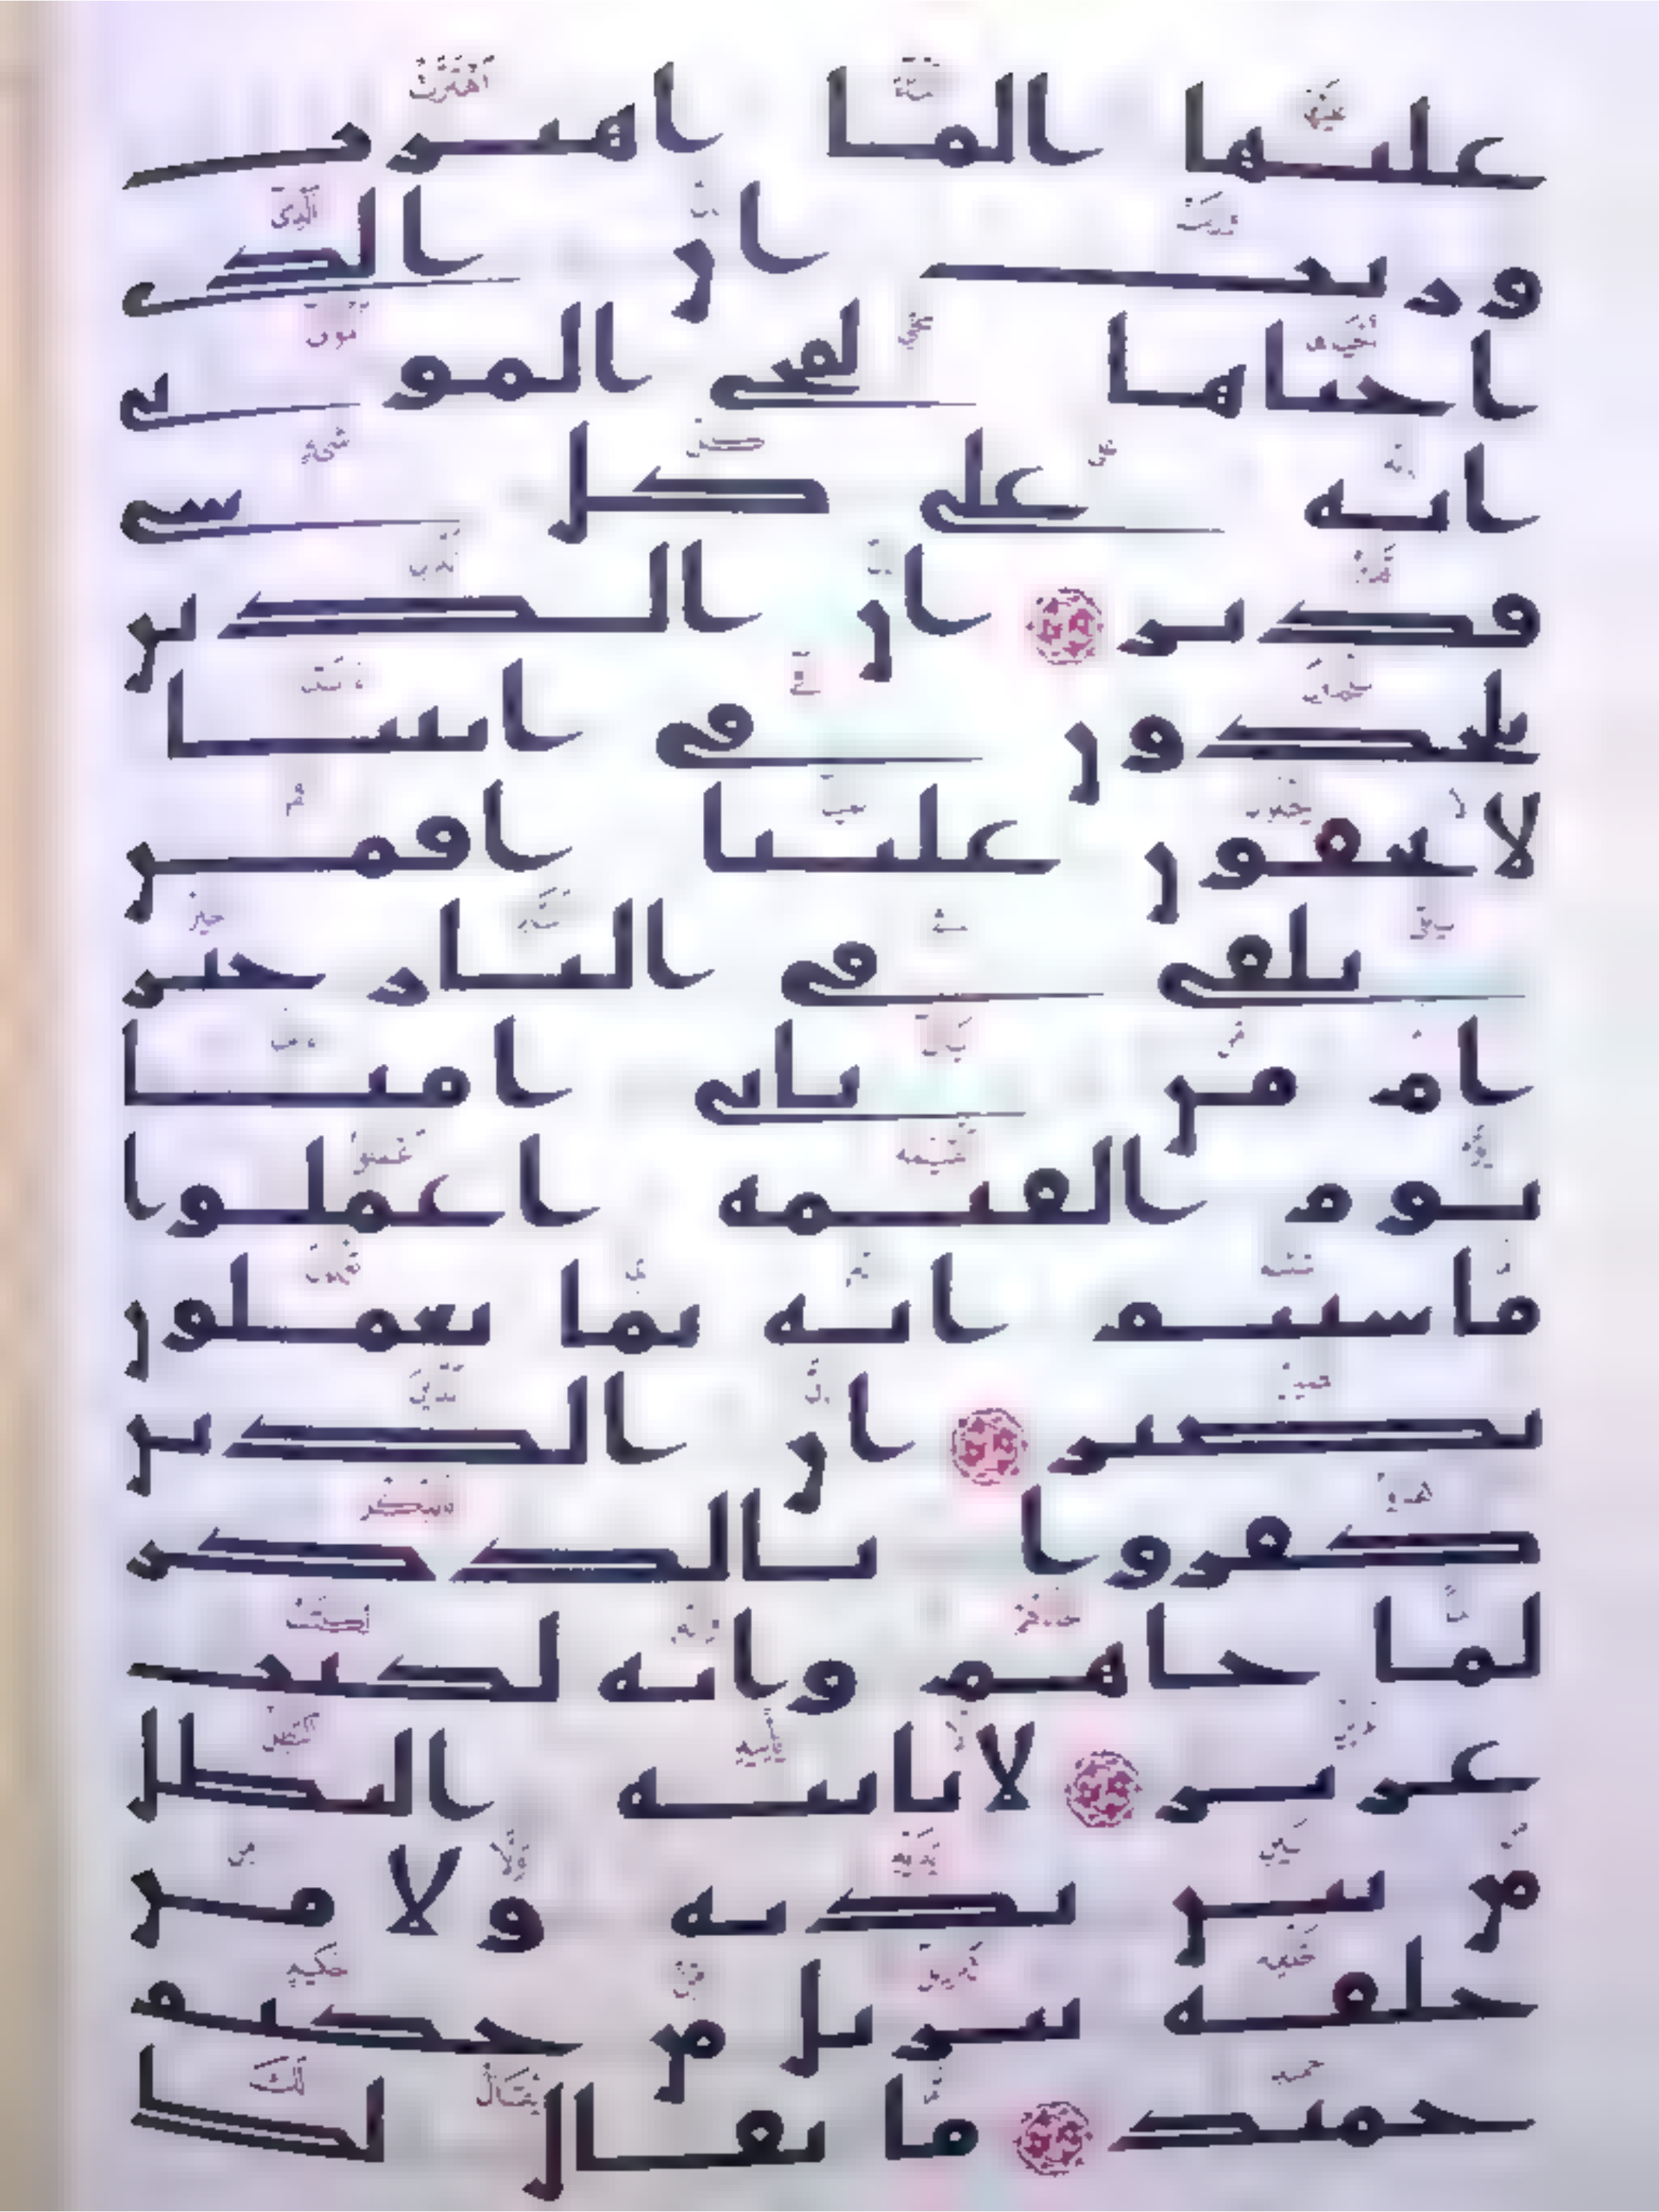 عليها الما اهتزت
وربت ان الذي
احياها لمحي الموتى
انه على كل شي
قدير ان الذين
يلحدون في ايتنا
لا يخفون علينا افمن
يلقى في النار خير
ام من ياتي امنا
يوم القيمة اعملوا
ما شيتم انه بما تعملون
بصير ان الذين
كفروا بالذكر
لما جاهم وانه لكتب
عزيز لا ياتيه البطل
من بين يديه ولا من
خلفه تنزيل من حكيم
حميد ما يقال لك